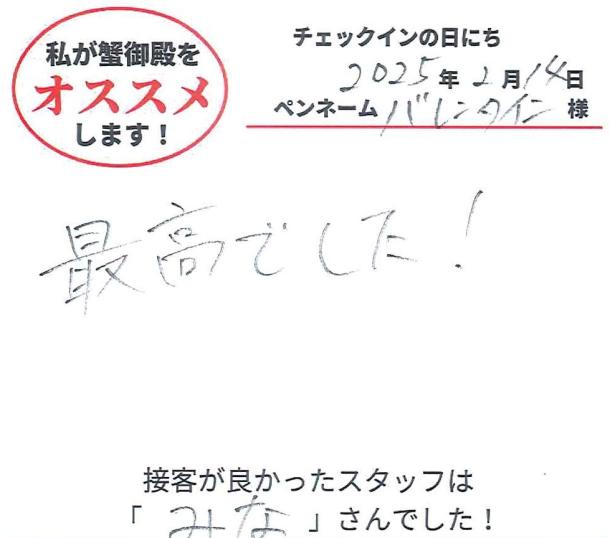 私が蟹御殿を
オススメ
します！
チェックインの日にち
2025年2月14日
ペンネーム バレンタイン 様
最高でした！
接客が良かったスタッフは
「 みな 」さんでした！